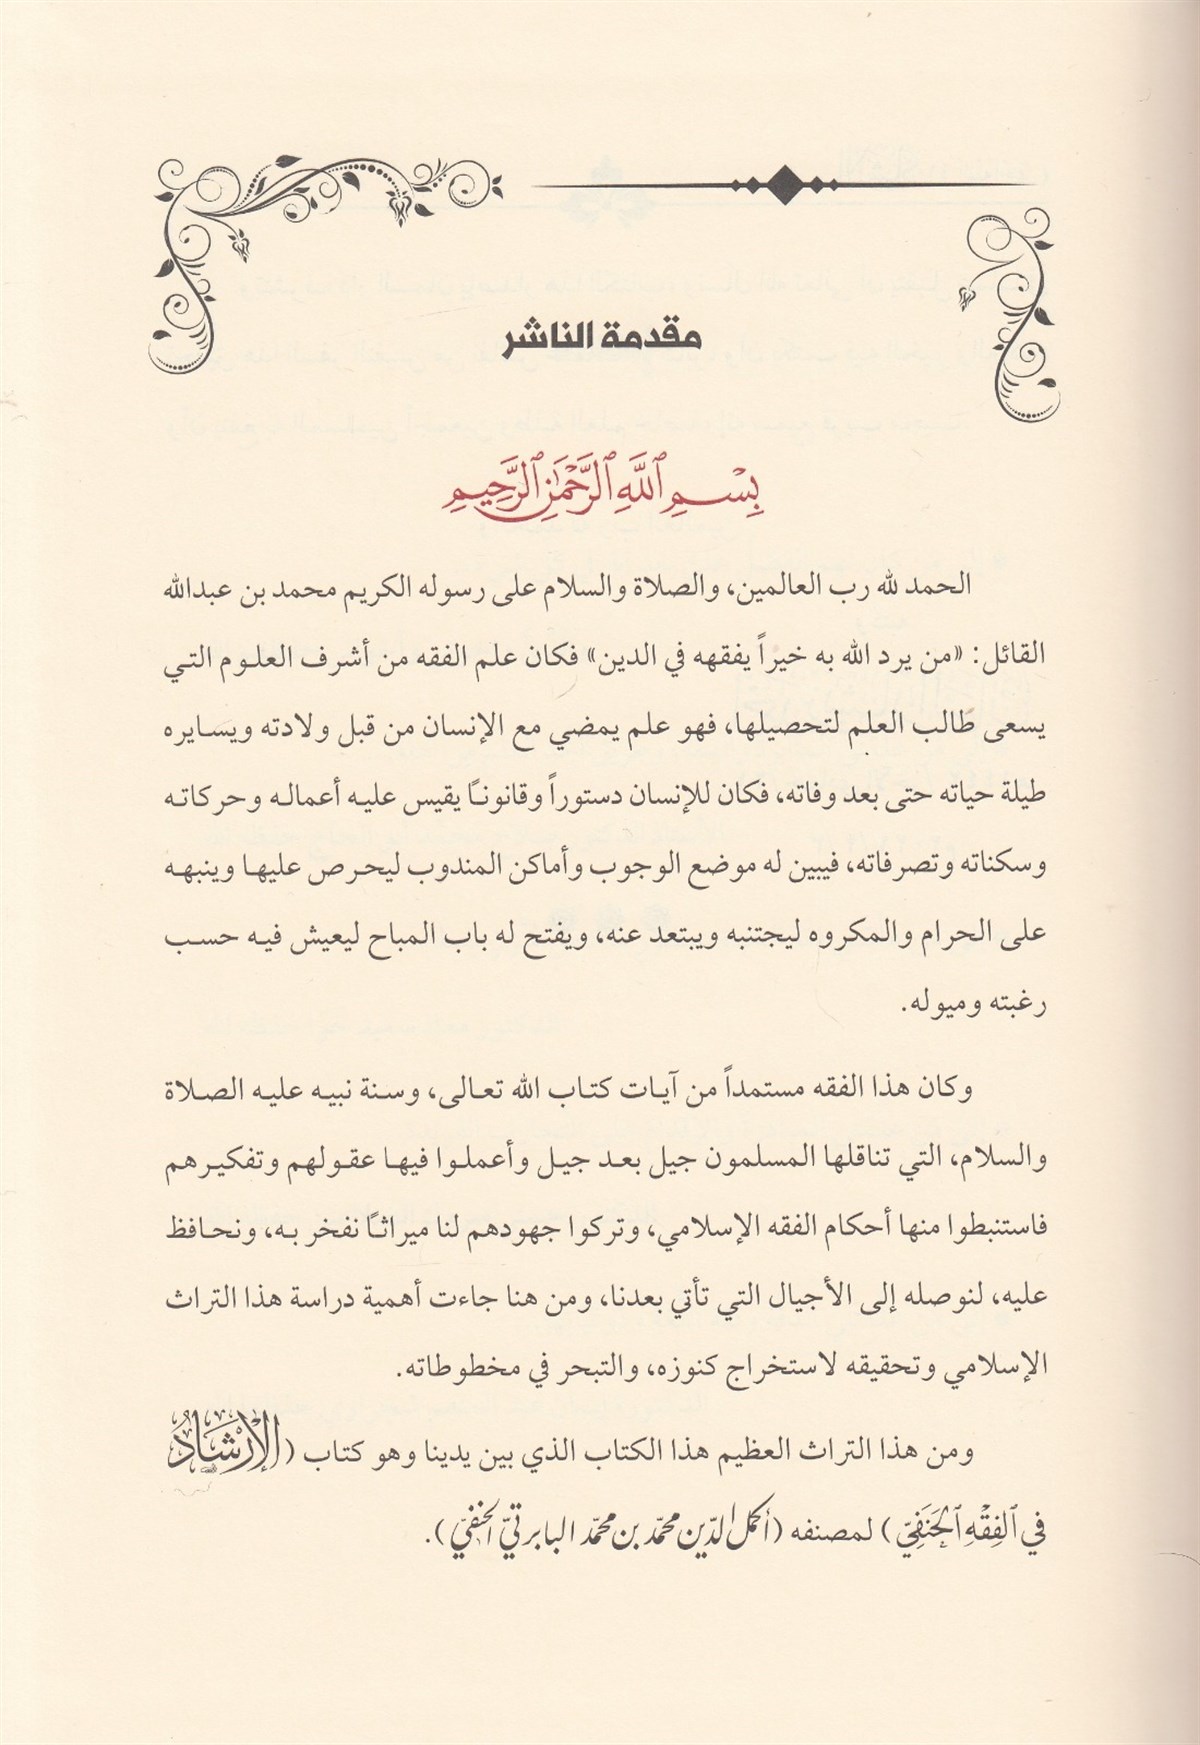 مقدمة الناشر
بِسْمِ ٱللَّهِ ٱلرَّحْمَٰنِ ٱلرَّحِيمِ
الحمد لله رب العالمين، والصلاة والسلام على رسوله الكريم محمد بن عبدالله
القائل: «من يرد الله به خيراً يفقهه في الدين» فكان علم الفقه من أشرف العلوم التي
يسعى طالب العلم لتحصيلها، فهو علم يمضي مع الإنسان من قبل ولادته ويسايره
طيلة حياته حتى بعد وفاته، فكان للإنسان دستوراً وقانونًا يقيس عليه أعماله وحركاته
وسكناته وتصرفاته، فيبين له موضع الوجوب وأماكن المندوب ليحرص عليها وينبهه
على الحرام والمكروه ليجتنبه ويبتعد عنه، ويفتح له باب المباح ليعيش فيه حسب
رغبته وميوله.
وكان هذا الفقه مستمداً من آيات كتاب الله تعالى، وسنة نبيه عليه الصلاة
والسلام، التي تناقلها المسلمون جيل بعد جيل وأعملوا فيها عقولهم وتفكيرهم
فاستنبطوا منها أحكام الفقه الإسلامي، وتركوا جهودهم لنا ميراثًا نفخر به، ونحافظ
عليه، لنوصله إلى الأجيال التي تأتي بعدنا، ومن هنا جاءت أهمية دراسة هذا التراث
الإسلامي وتحقيقه لاستخراج كنوزه، والتبحر في مخطوطاته.
ومن هذا التراث العظيم هذا الكتاب الذي بين يدينا وهو كتاب (الإِرْشَادُ
في ٱلفِقْهِ ٱلحَنَفِيّ) لمصنفه (أكمل الدّين محمّد بن محمّد البابرتيّ الحنفيّ).